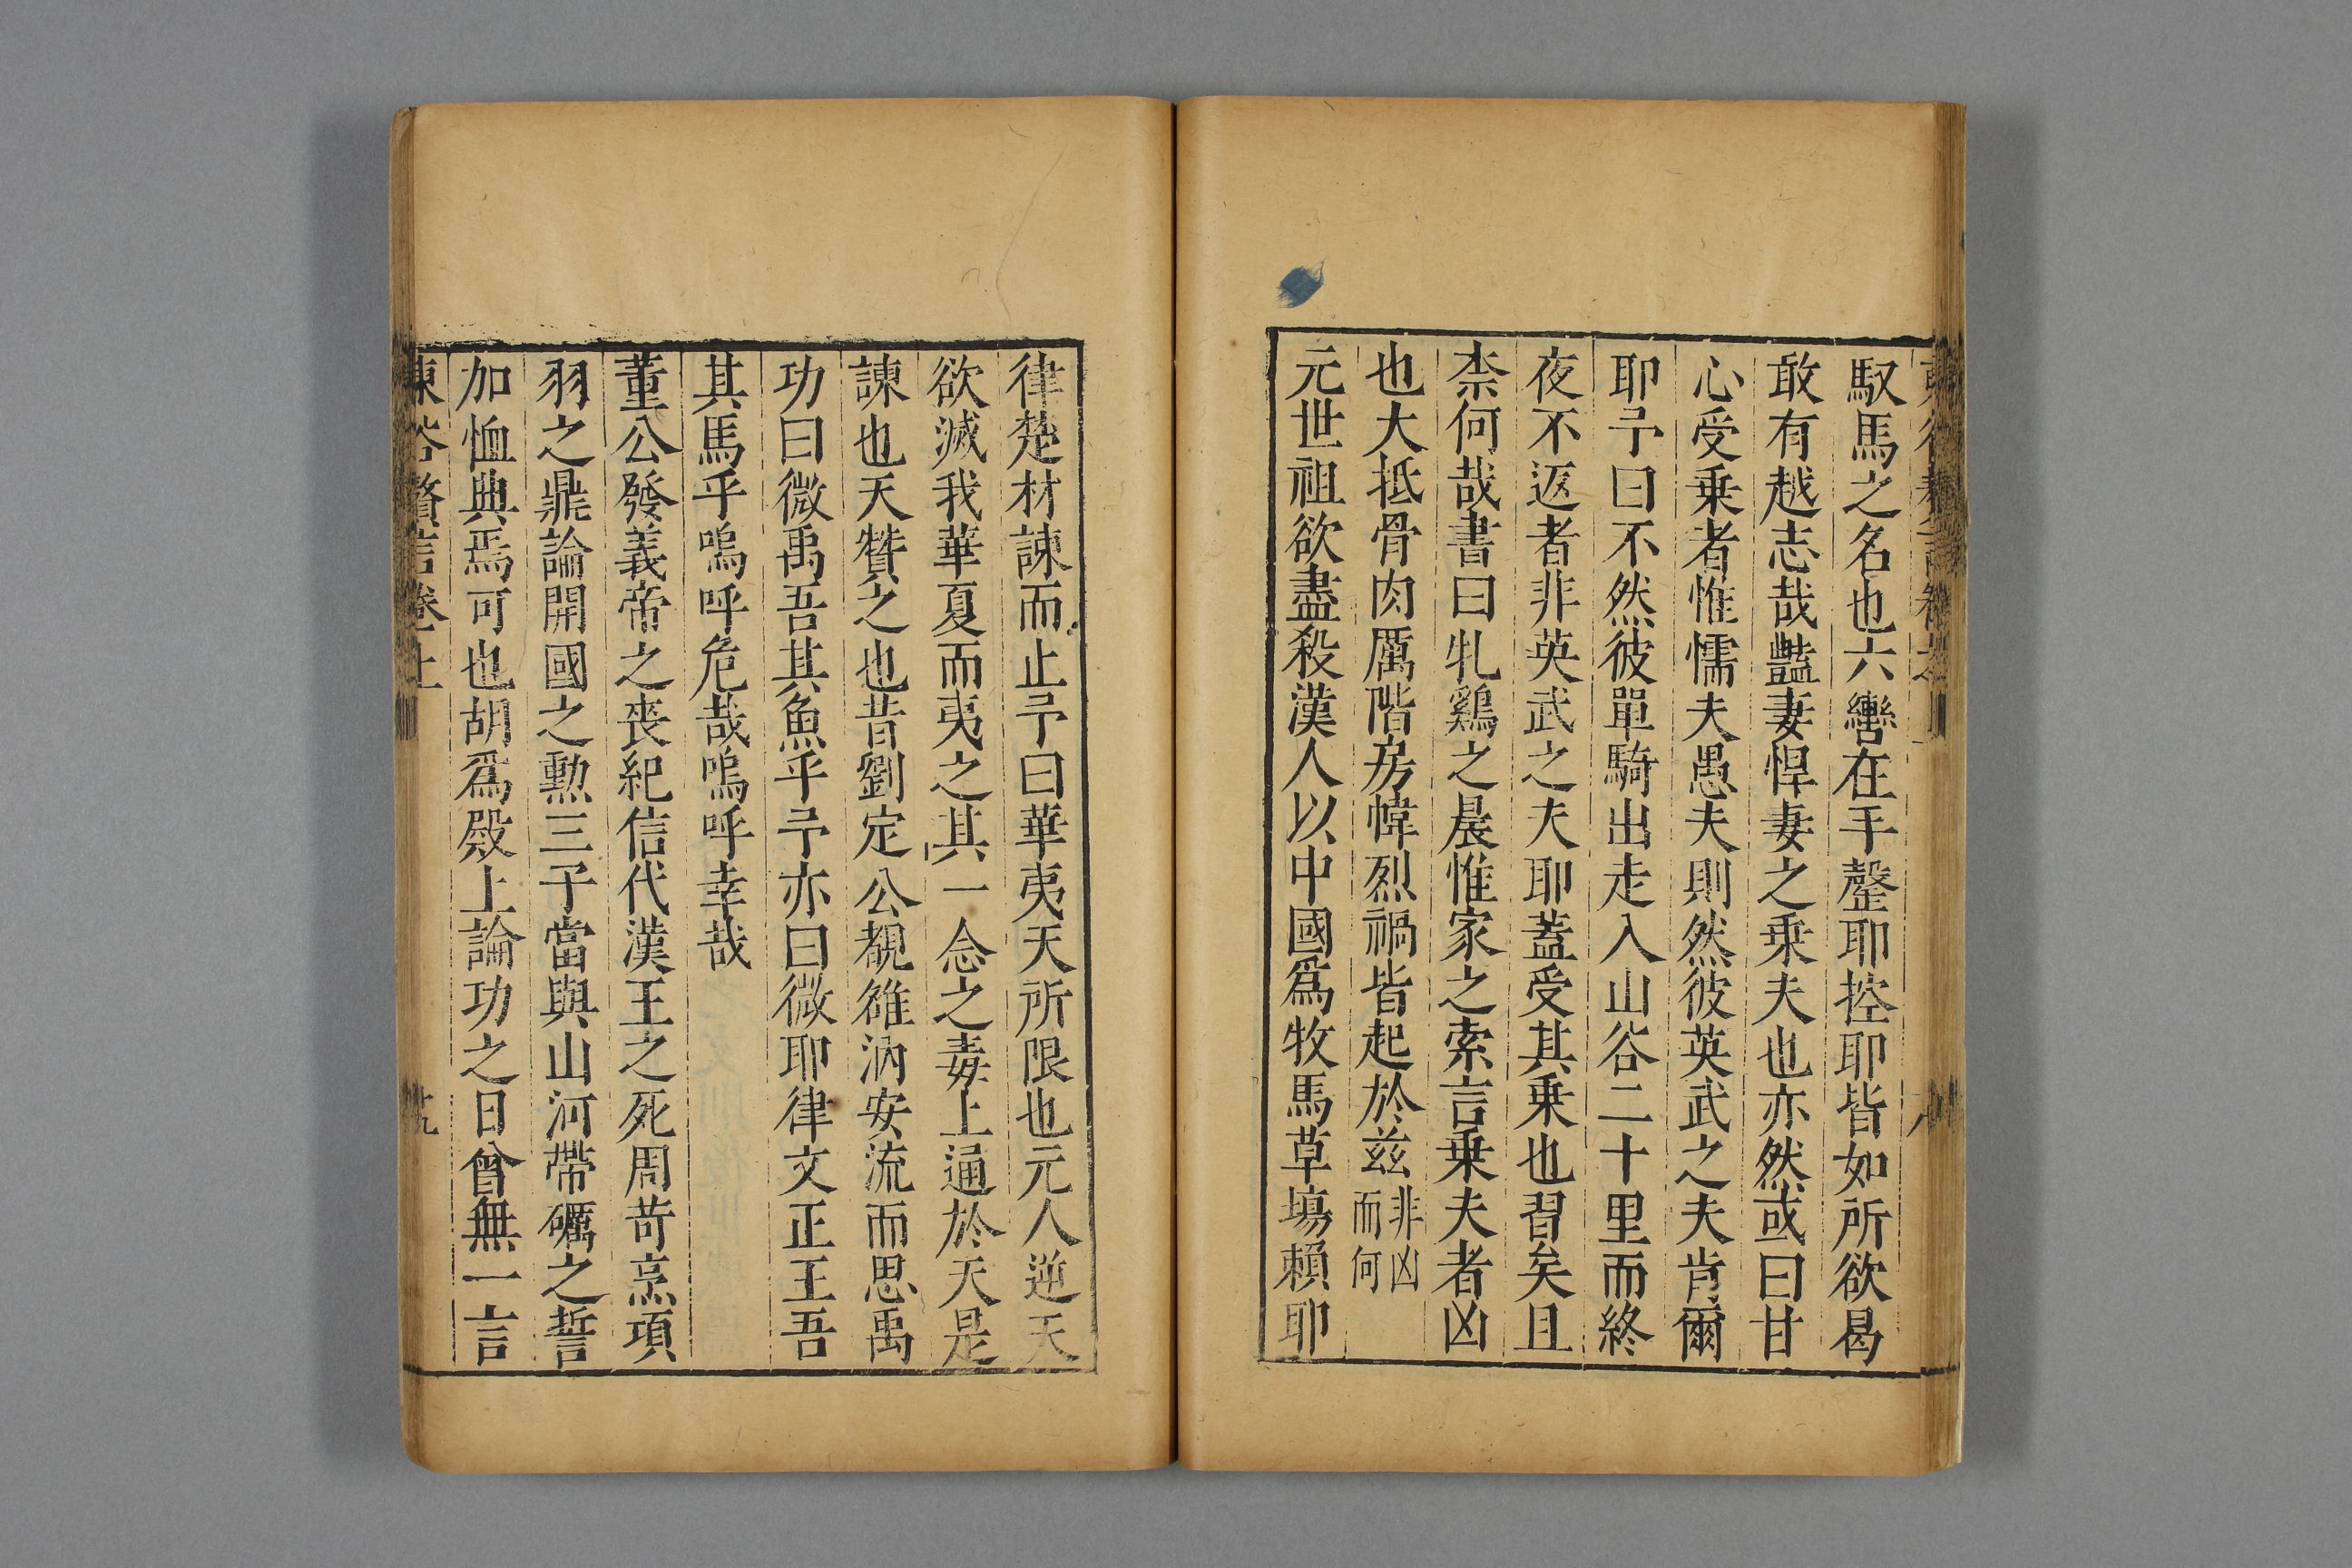 馭馬之名也六轡在手罄耶控耶皆如所欲曷
敢有越志哉豔妻悍妻之乗夫也亦然或曰甘
心受乗者惟懦夫愚夫則然彼英武之夫肯爾
耶予曰不然彼單騎出走入山谷二十里而終
夜不返者非英武之夫耶蓋受其乗也習矣且
柰何哉書曰牝鷄之晨惟家之索言乗夫者凶
也大抵骨肉厲階房幃烈禍皆起於兹非凶而何
元世祖欲盡殺漢人以中國爲牧馬草塲賴耶
律楚材諫而止予曰華夷天所限也元人逆天
欲滅我華夏而夷之其一念之毒上通於天是
諫也天贊之也昔劉定公覩雒汭安流而思禹
功曰微禹吾其魚乎予亦曰微耶律文正王吾
其馬乎嗚呼危哉嗚呼幸哉
董公發義帝之喪紀信代漢王之死周苛烹項
羽之鼎論開國之勲三子當與山河帶礪之誓
加恤典焉可也胡爲殿上論功之日曾無一言
東谷贅言卷上